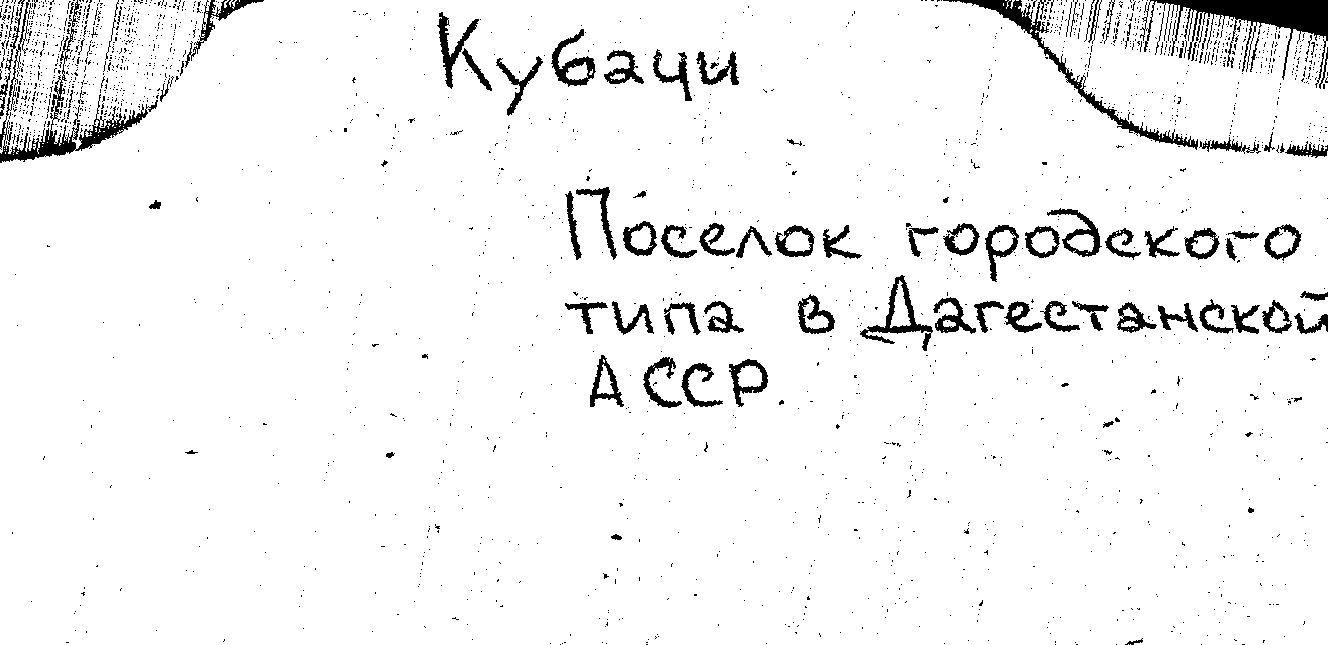 Кубачи
Поселок городского
типа в Дагестанской
АССР.